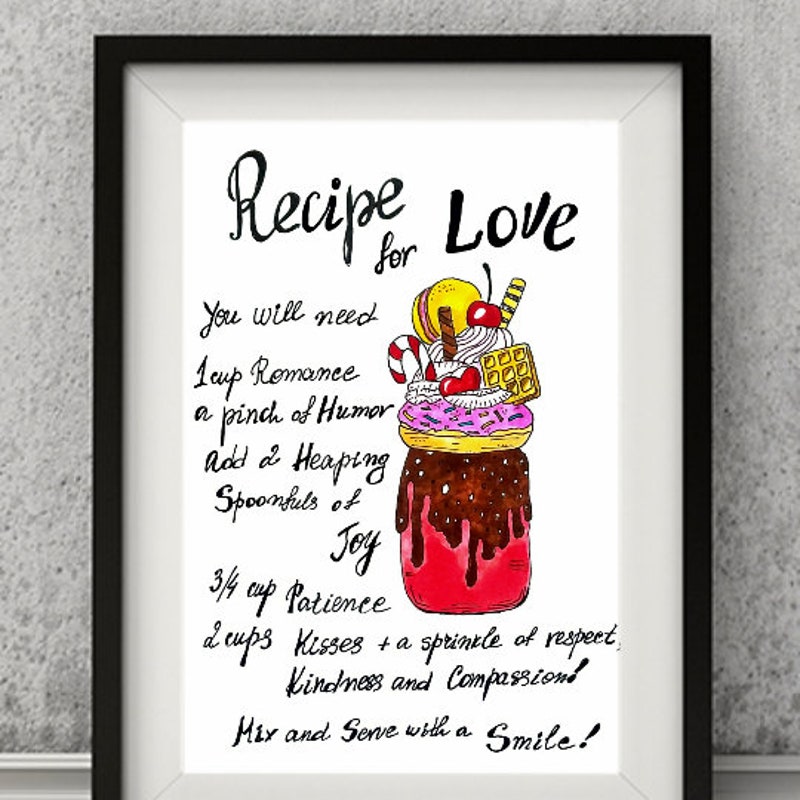 Recipe for Love
You will need
1 cup Romance
a pinch of Humor
add 2 Heaping
Spoonfuls of
Joy
3/4 cup Patience
2 cups Kisses + a sprinkle of respect,
Kindness and Compassion!
Mix and Serve with a Smile!